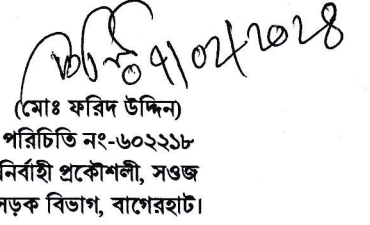 ০৭/০২/২০২৪
(মোঃ ফরিদ উদ্দিন)
পরিচিতি নং-৬০২২১৮
নির্বাহী প্রকৌশলী, সওজ
সড়ক বিভাগ, বাগেরহাট।